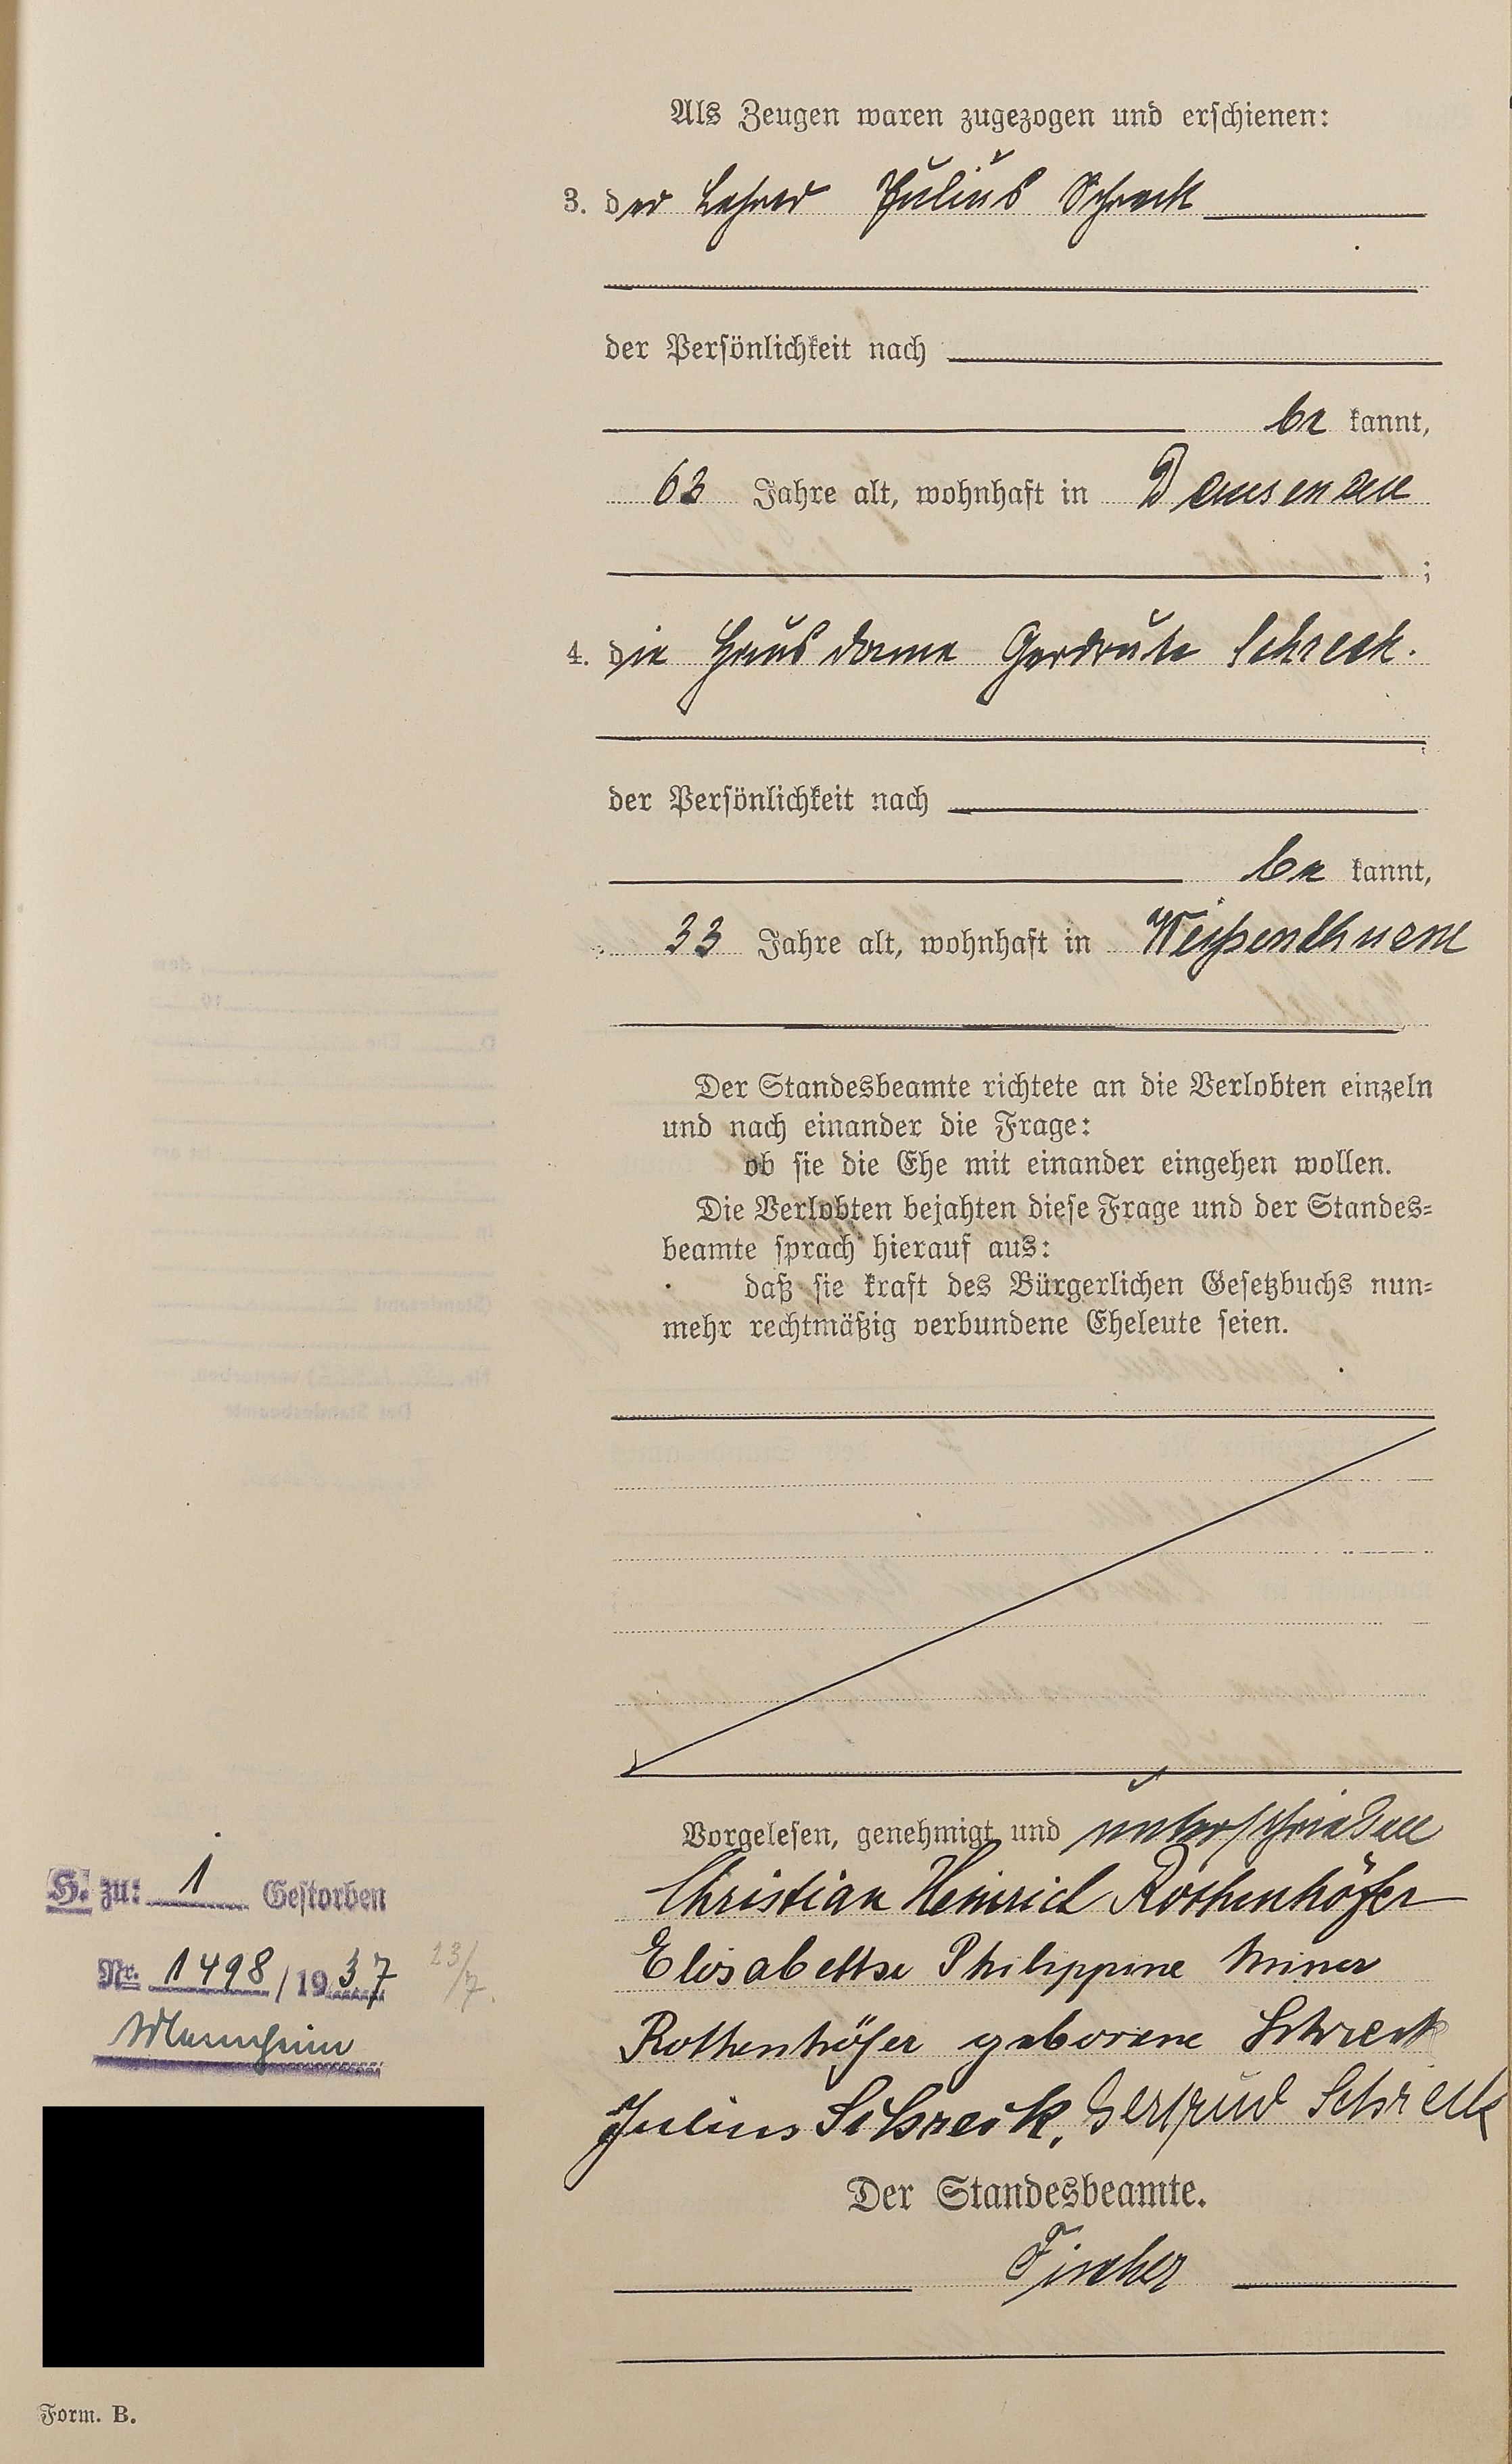 Als Zeugen waren zugezogen und erschienen:
3. der Lehrer Julius Schreck
der Persönlichkeit nach
be kannt,
63 Jahre alt, wohnhaft in Dausenau
;
4. die Hausdame Gerdrute Schreck.
der Persönlichkeit nach
be kannt,
33 Jahre alt, wohnhaft in Weißenthurm
Der Standesbeamte richtete an die Verlobten einzeln
und nach einander die Frage:
ob sie die Ehe mit einander eingehen wollen.
Die Verlobten bejahten diese Frage und der Standes-
beamte sprach hierauf aus:
daß sie kraft des Bürgerlichen Gesetzbuchs nun-
mehr rechtmäßig verbundene Eheleute seien.
Vorgelesen, genehmigt und unterschrieben
Christian Heinrich Rothenhöfer
Elisabethe Philippine Minna
Rothenhöfer geborene Schreck
Julius Schreck, Gertrud Schreck
Der Standesbeamte.
Fischer
H. zu: 1 Gestorben
Nr. 1498 / 1937 23/7.
Mannheim
Form. B.